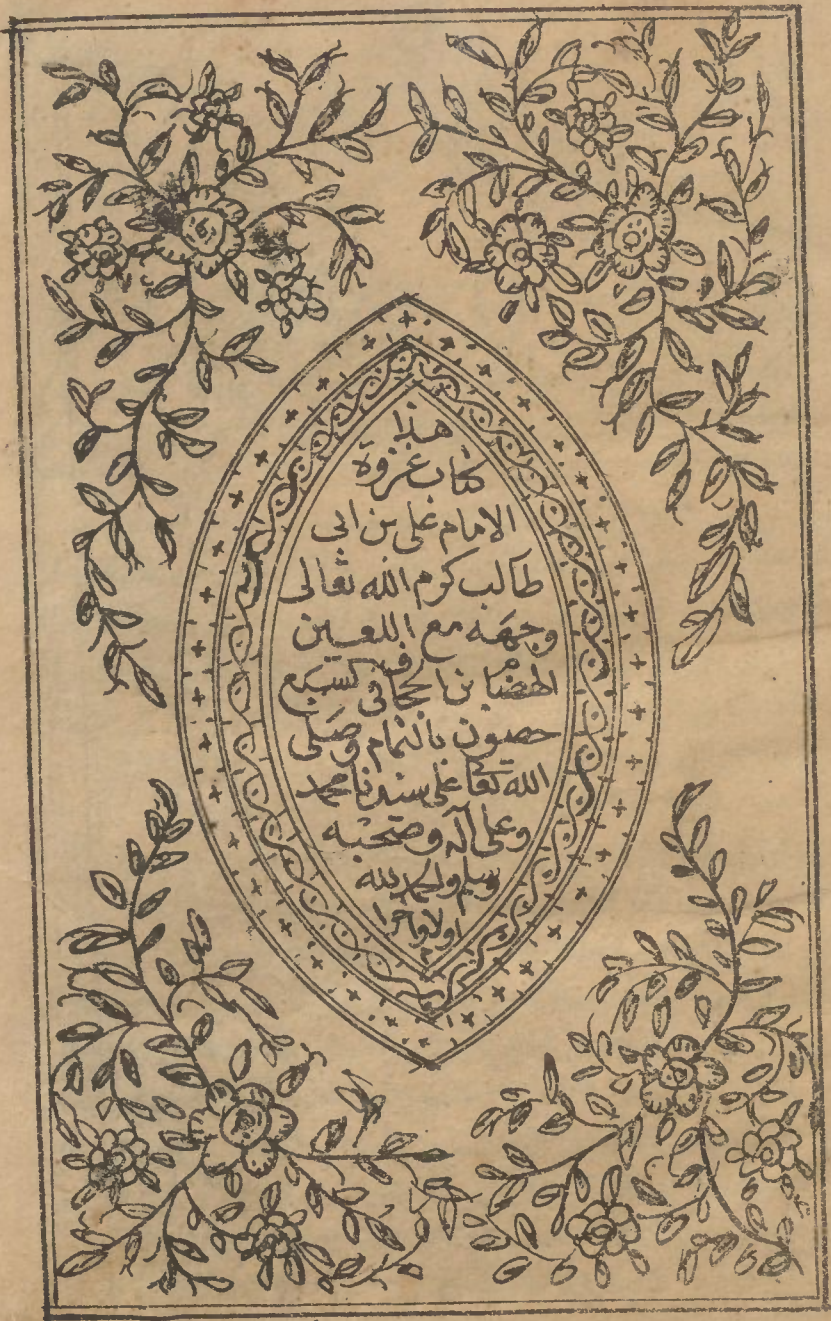 هذا
كتاب غزوة
الامام على بن ابى
طالب كرم الله تعالى
وجهه مع اللعين
الهضام بن الجحاف
حصون بالتمام وصلى
الله تعا على سيدنا محمد
وعلى آله وصحبه
وسلم والحمد لله
اولا واخرا